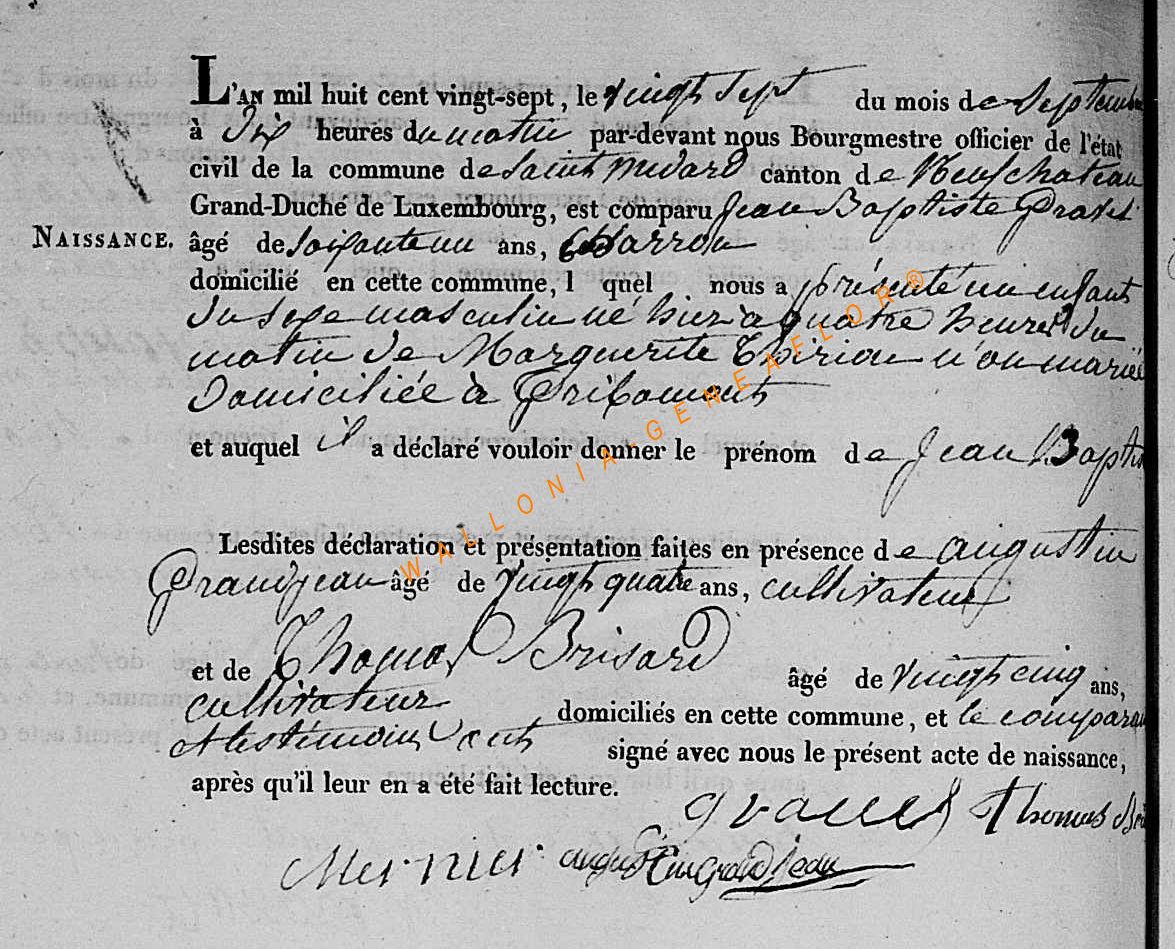 L'AN mil huit cent vingt-sept, le vingt sept du mois de Septembre
à dix heures du matin par-devant nous Bourgmestre officier de l'état
civil de la commune de Saint medard canton de Neufchateau
Grand-Duché de Luxembourg, est comparu Jean Baptiste
NAISSANCE.
âgé de soixante un ans,
domicilié en cette commune, l quel nous a présenté un enfant
du sexe masculin né hier à quatre heures du
matin de Marguerite Thirion non mariée
Domiciliée à Gribomont
et auquel il a déclaré vouloir donner le prénom de Jean Baptis
Lesdites déclaration et présentation faites en présence de augustin
Grandjean âgé de vingt quatre ans, cultivateur
et de Thomas Brisard âgé de vingt cinq ans,
cultivateur domiciliés en cette commune, et le comparant
et les témoins ont signé avec nous le présent acte de naissance,
après qu'il leur en a été fait lecture.
Thomas Bri
augustin grandjean
WALLONIA-GENEAFLOR®